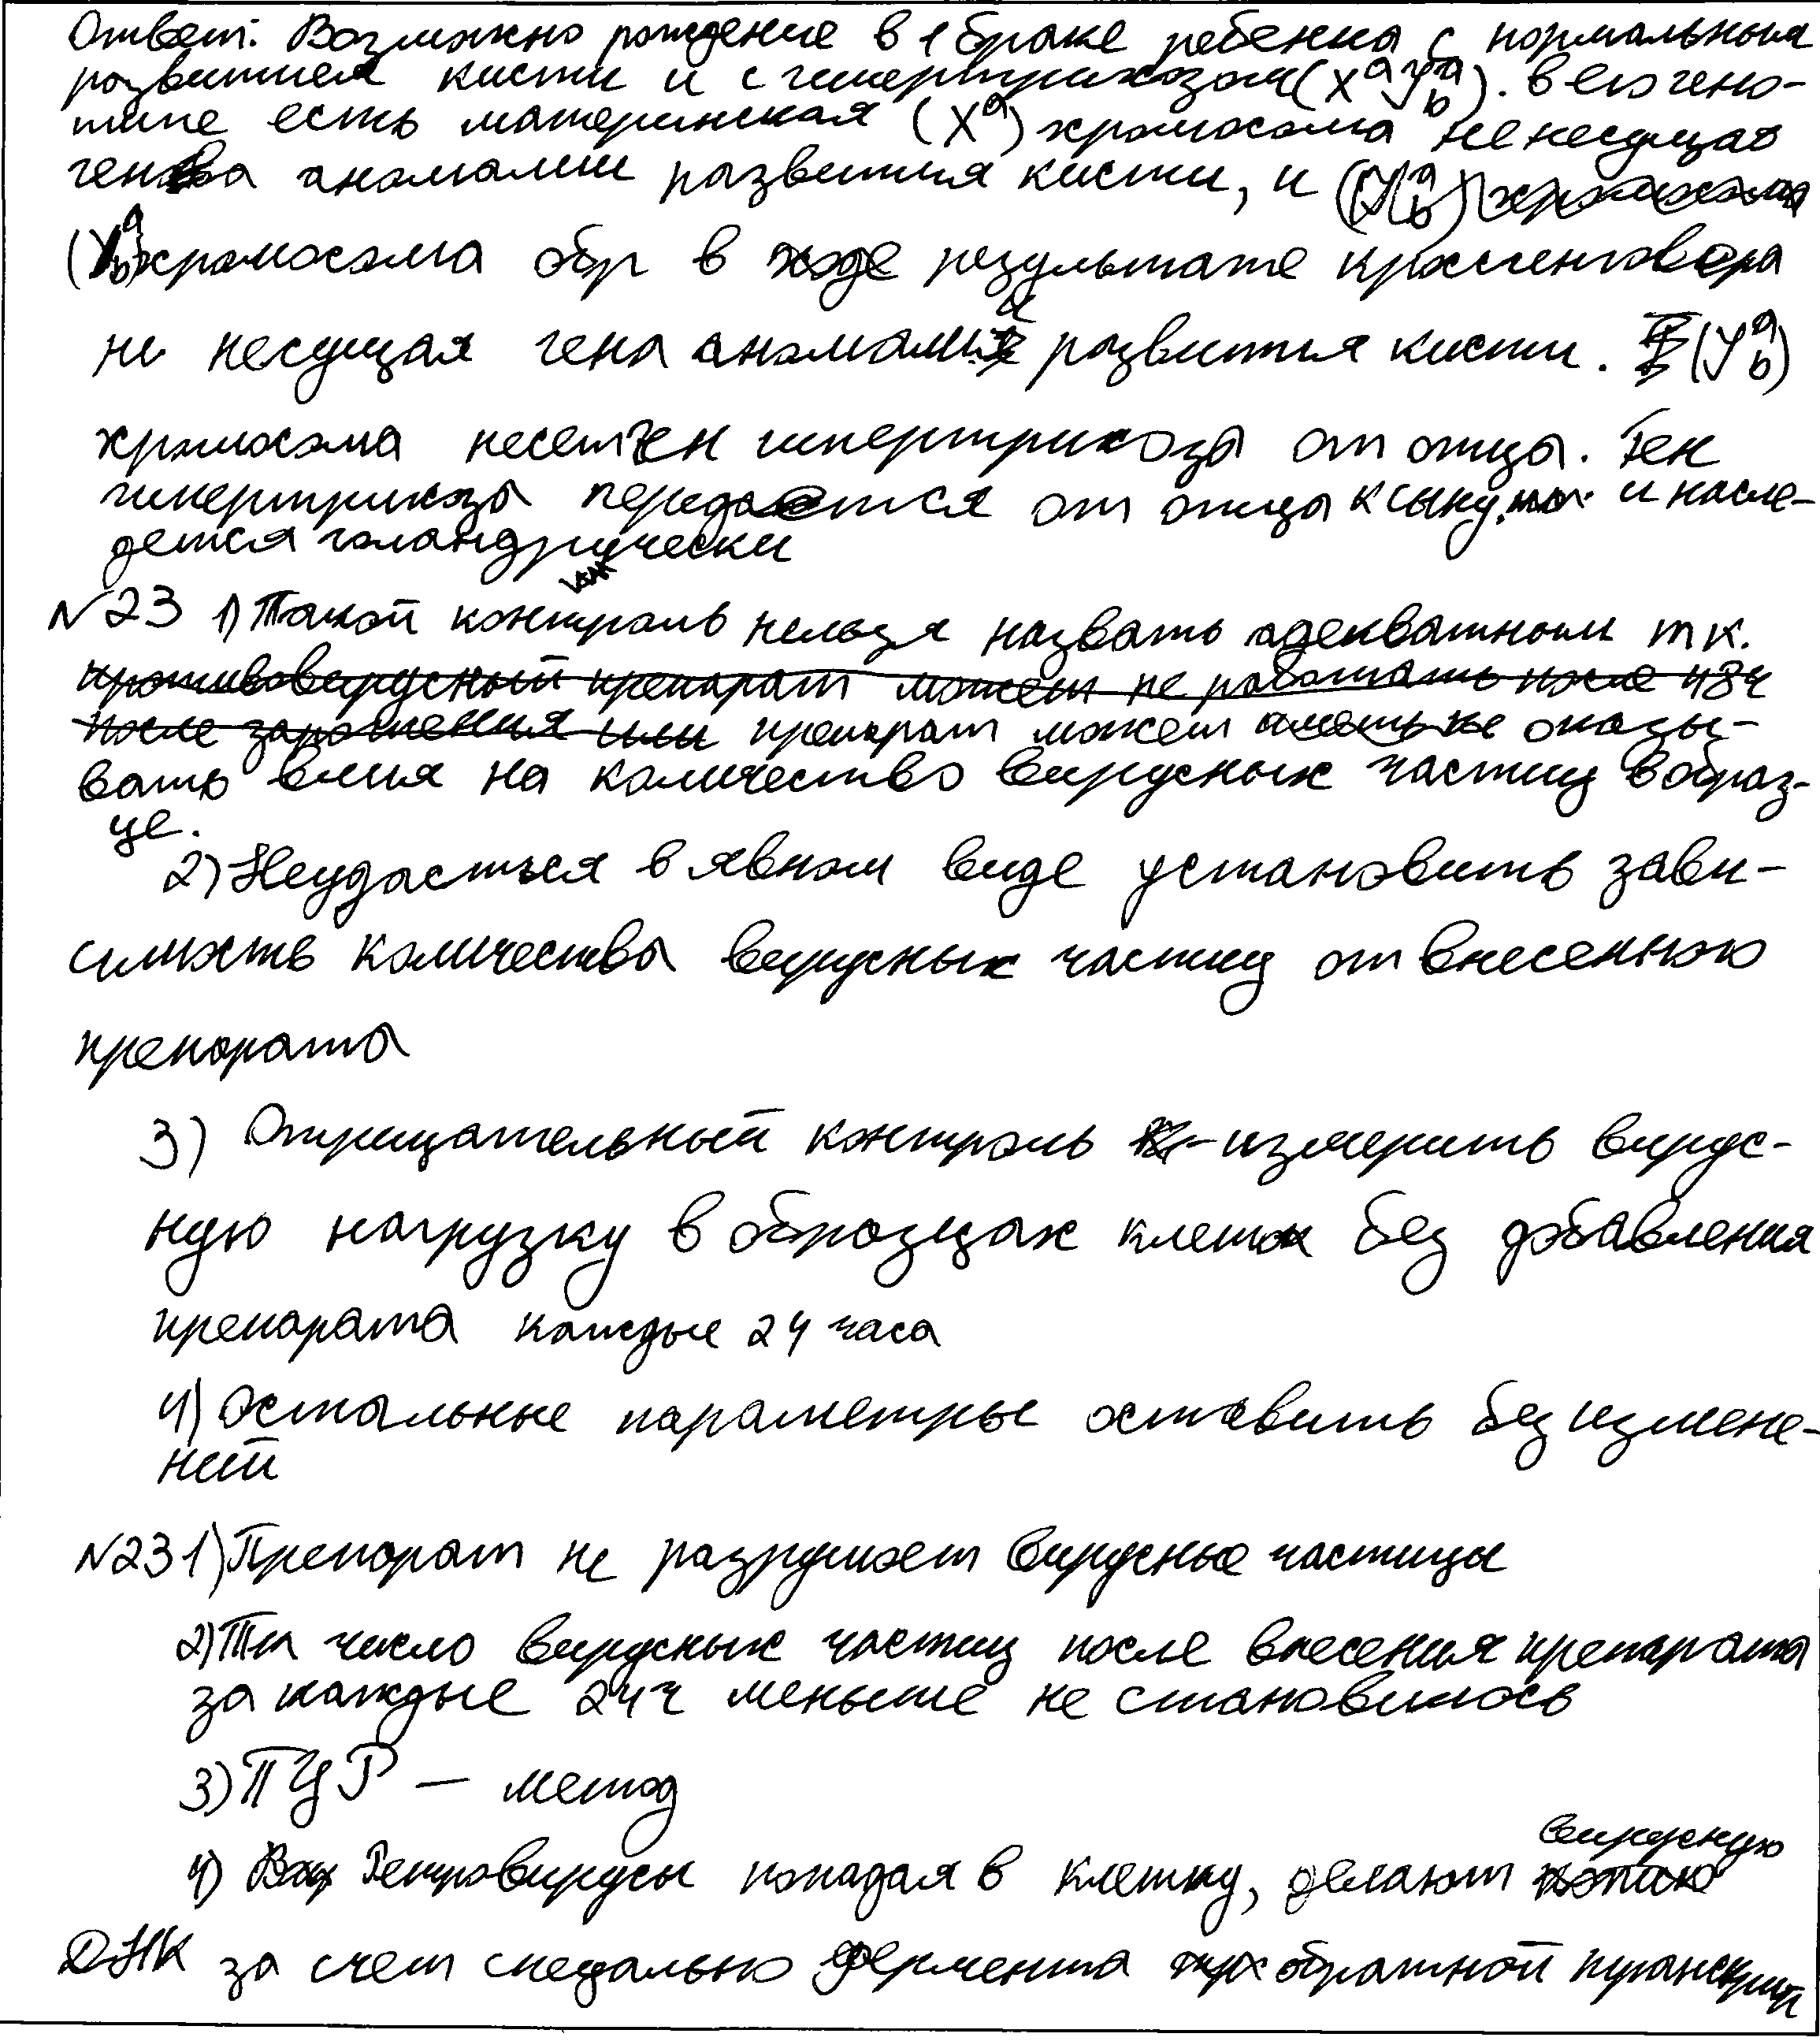 Ответ: Возможно рождение в 1 браке ребенка с нормальным
развитием кисти и с гипертрихозом (XᵃYᵃb). в его гено-
типе есть материнская (Xᵃ) хромосома не несущая
гена аномалии развития кисти, и
(Yᵃb) хромосома обр в результате кроссинговера
не несущая гена аномалии развития кисти. (Yᵃb)
хромосома несет ген гипертрихоза от отца. Ген
гипертрихоза передается от отца к сыну. и насле-
дется голандрически
№23 1) Такой контроль нельзя назвать адекватным тк.
противовирусный препарат может не работать после 48ч
после заражения или препарат может оказы-
вать влия на количество вирусных частиц в образ-
це.
2) Неудасться в явном виде установить зави-
симость количества вирусных частиц от внесенного
препарата
3) Отрицательный контроль - измерить вирус-
ную нагрузку в образцах клеток без добавления
препарата каждые 24 часа
4) Остальные параметры оставить без измене-
ний
№23 1) Препарат не разрушает вирусные частицы
2) Тк число вирусных частиц после внесения препарата
за каждые 24ч меньше не становилось
3) ПЦР — метод
4) Ретровирусы попадая в клетку, делают вирусную
ДНК за счет специально фермента обратной транскрип